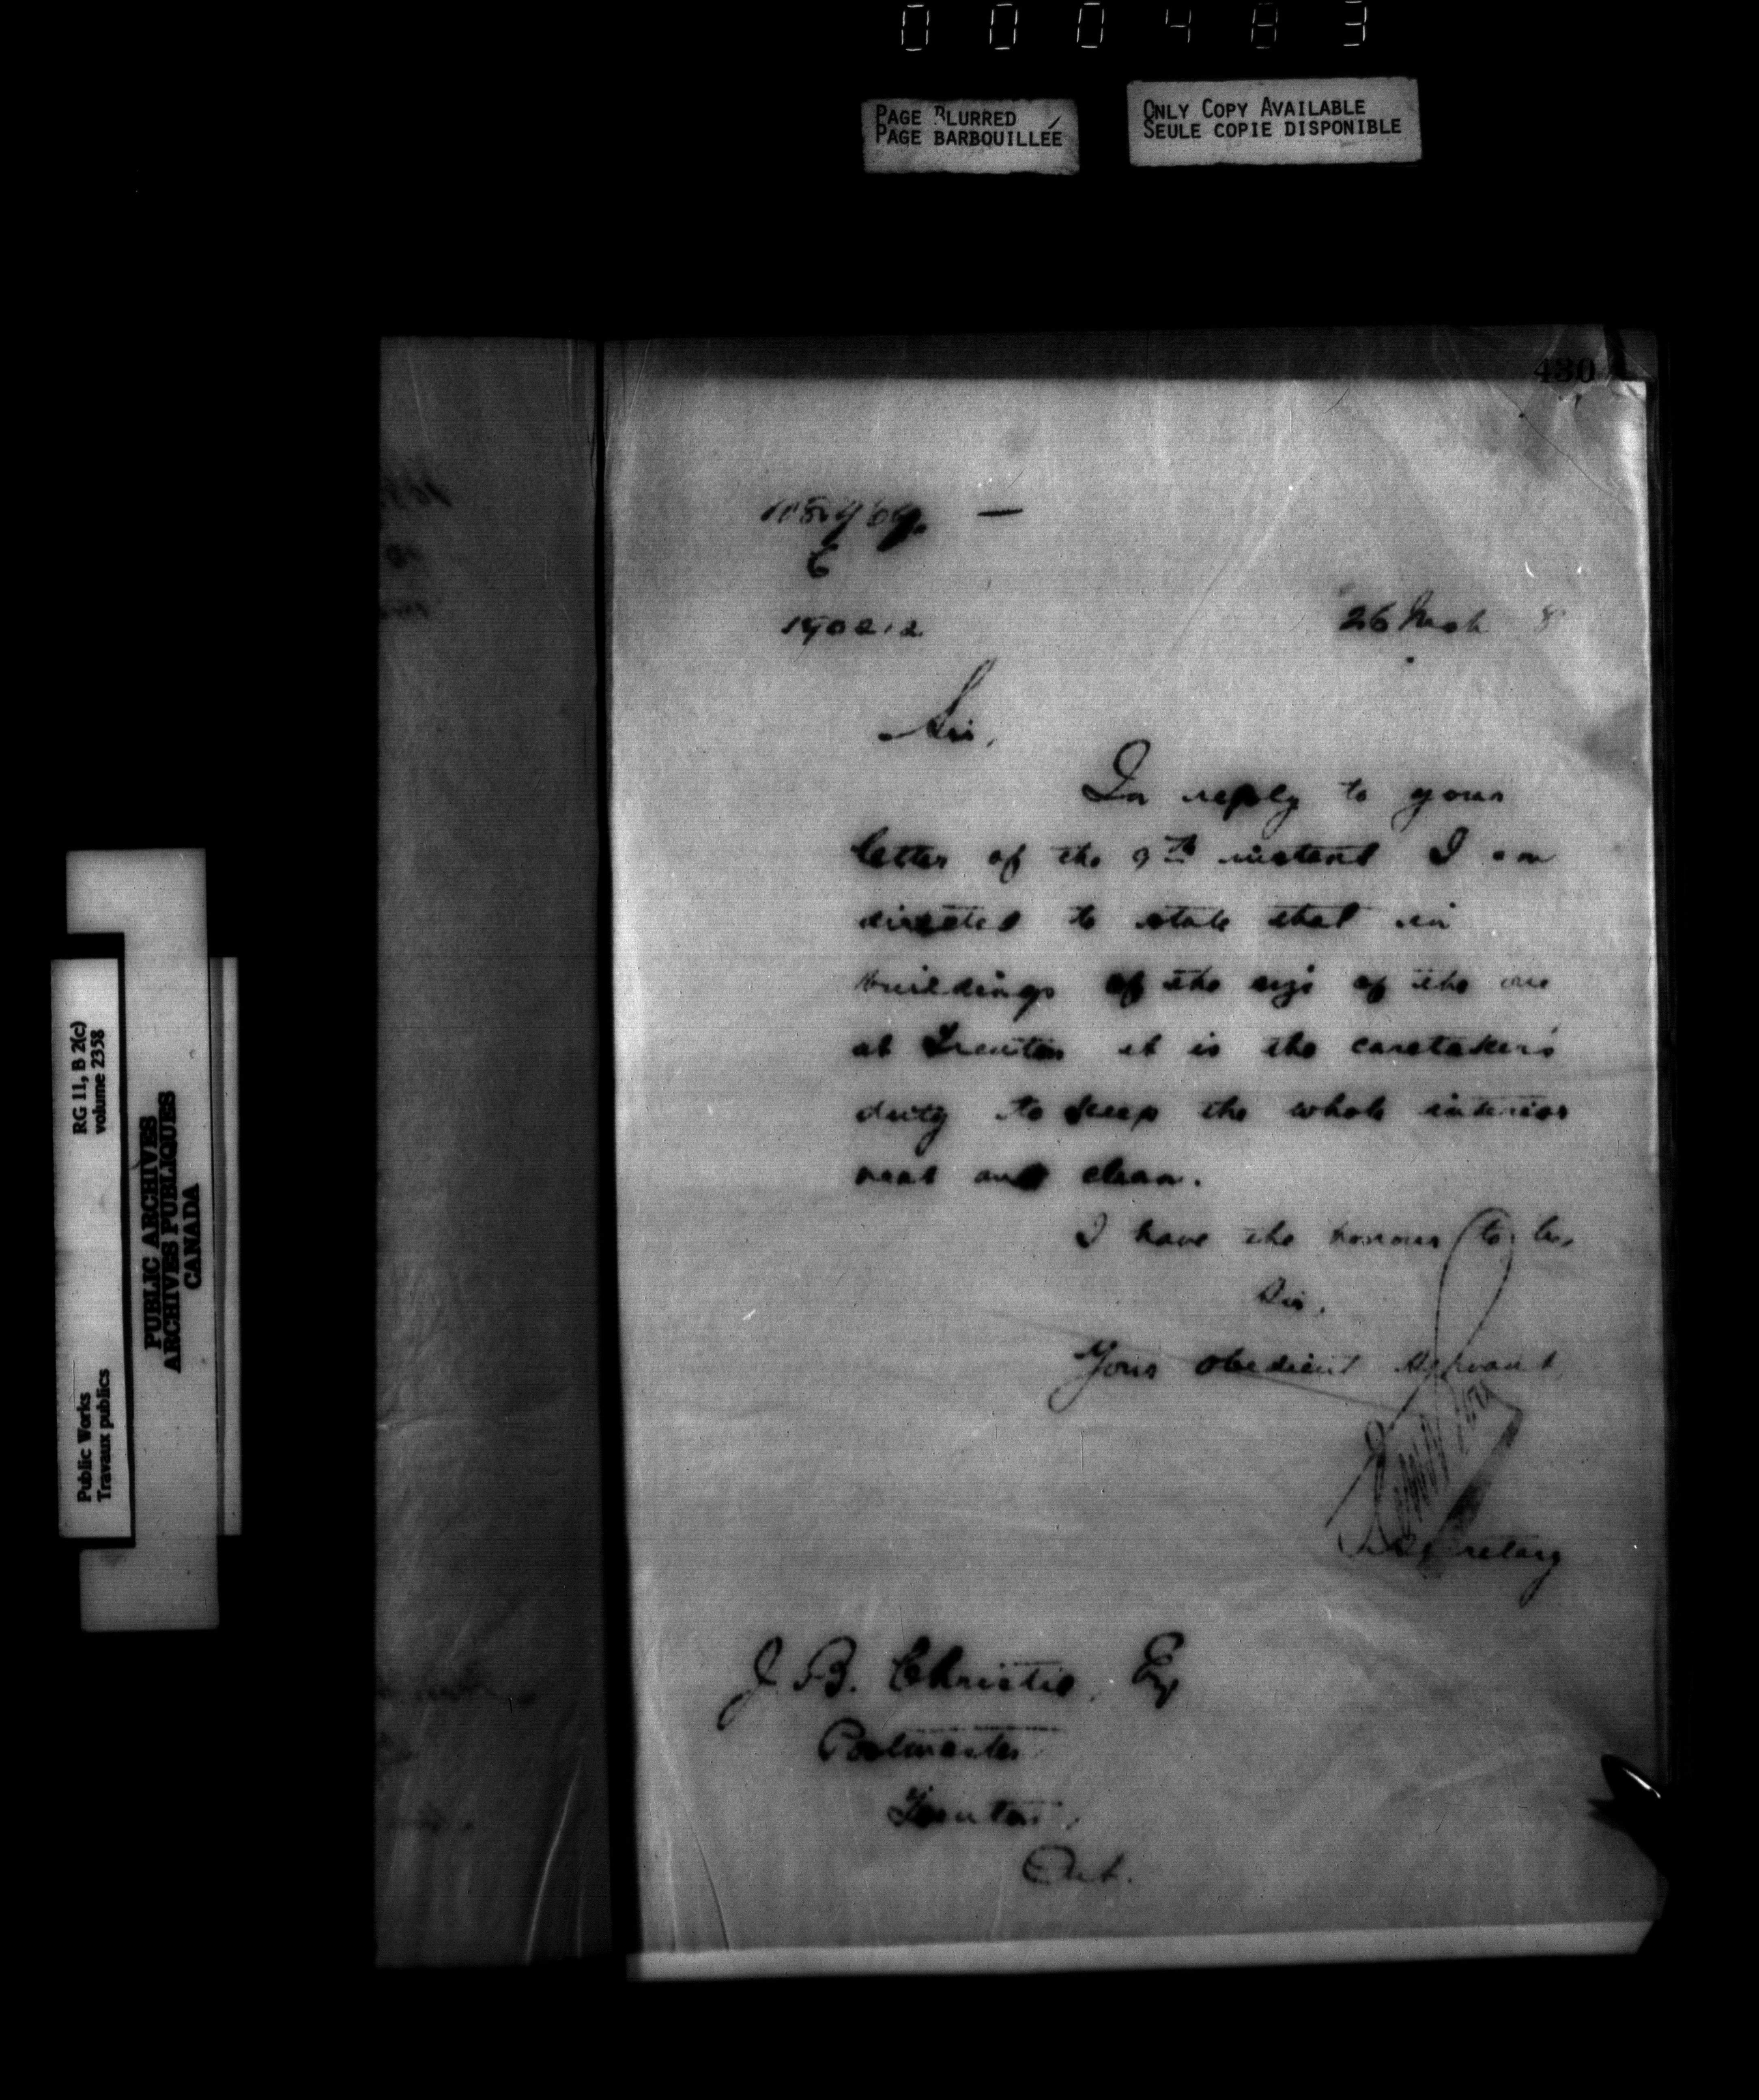 000483
PAGE BLURRED
PAGE BARBOUILLÉE
ONLY COPY AVAILABLE
SEULE COPIE DISPONIBLE
430
26 Mch 8
Sir,
In reply to your
letter of the 9th instant I am
directed to state that in
buildings of the size of the one
at Trenton it is the caretaker's
duty to keep the whole interior
neat and clean.
I have the honour to be,
Sir,
Your obedient Servant
Secretary
J. B. Christie, Esq
Postmaster
Trenton,
Ont.
RG 11, B 2(c)
volume 2358
Public Works
Travaux publics
PUBLIC ARCHIVES
ARCHIVES PUBLIQUES
CANADA